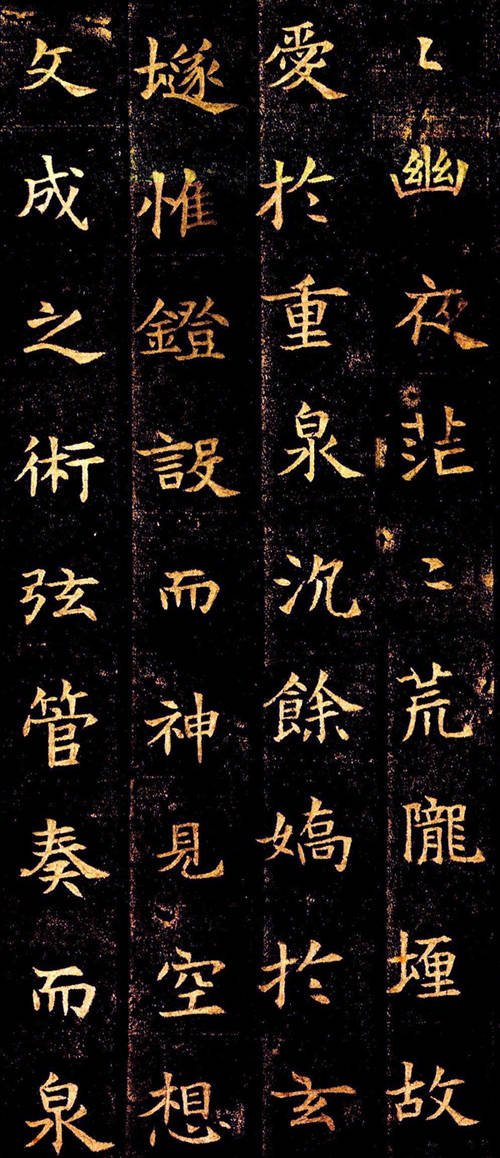 〻幽夜茫〻荒隴堙故
愛於重泉沉餘嬌於玄
隧惟鐙設而神見空想
文成之術弦管奏而泉